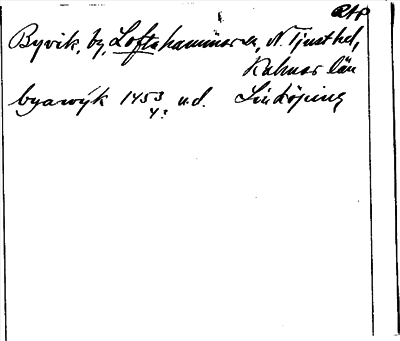 Byvik, by, Loftahammar sn, N. Tjust hd,
Kalmar län
byawÿk 1453 u.d. Linköping